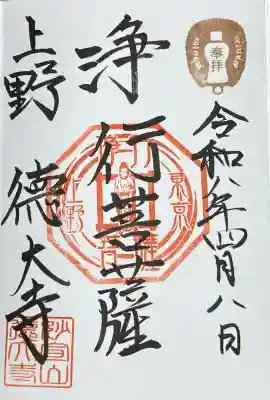 奉拝
令和八年四月八日
浄行菩薩
東京
上野
上野 徳大寺